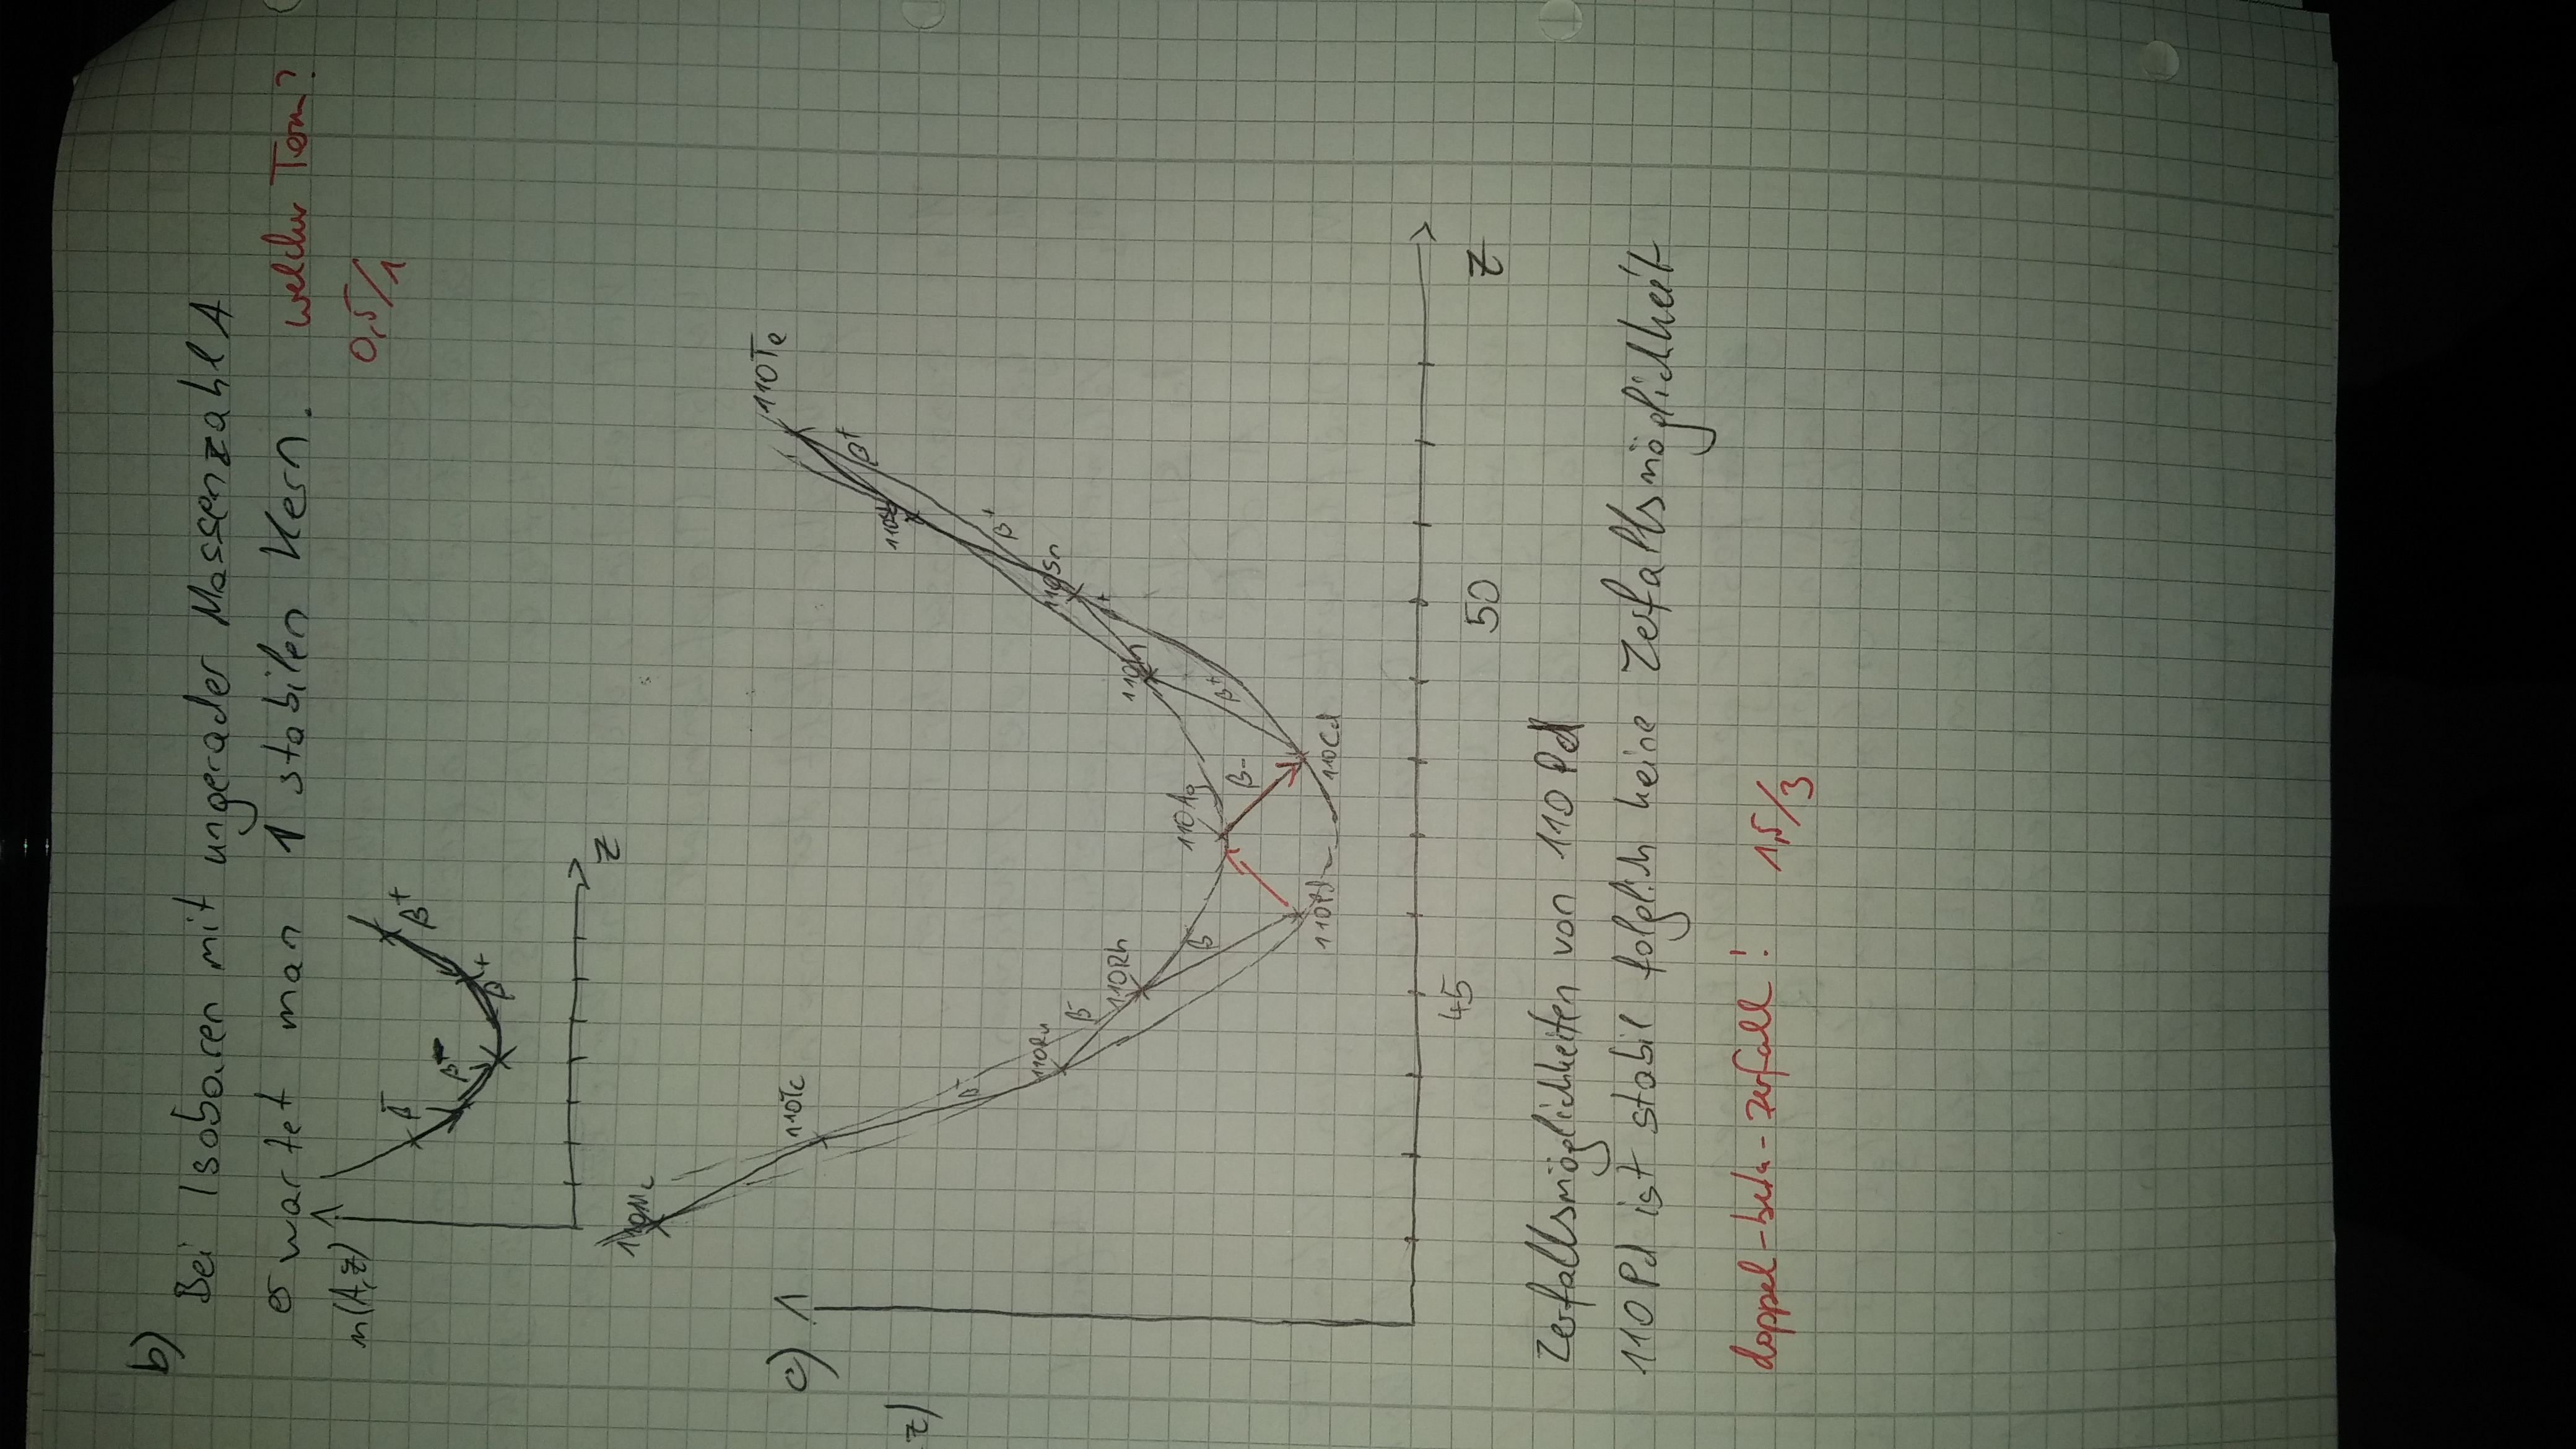 b)
Bei Isobaren mit ungerader Massenzahl A
erwartet man 1 stabilen Kern. welcher Term?
0,5/1
m(A,Z)
β-
β-
β+
β+
Z
110Tc
110Te
c)
z)
β+
β-
β+
110Ru
110Sn
β-
110Rh
110In
110Ag
β-
β-
β+
110Pd
110Cd
45
50
Z
Zerfallsmöglichkeiten von 110 Pd
110 Pd ist stabil folglich keine Zerfallsmöglichkeit
doppel-beta-zerfall! 1,5/3